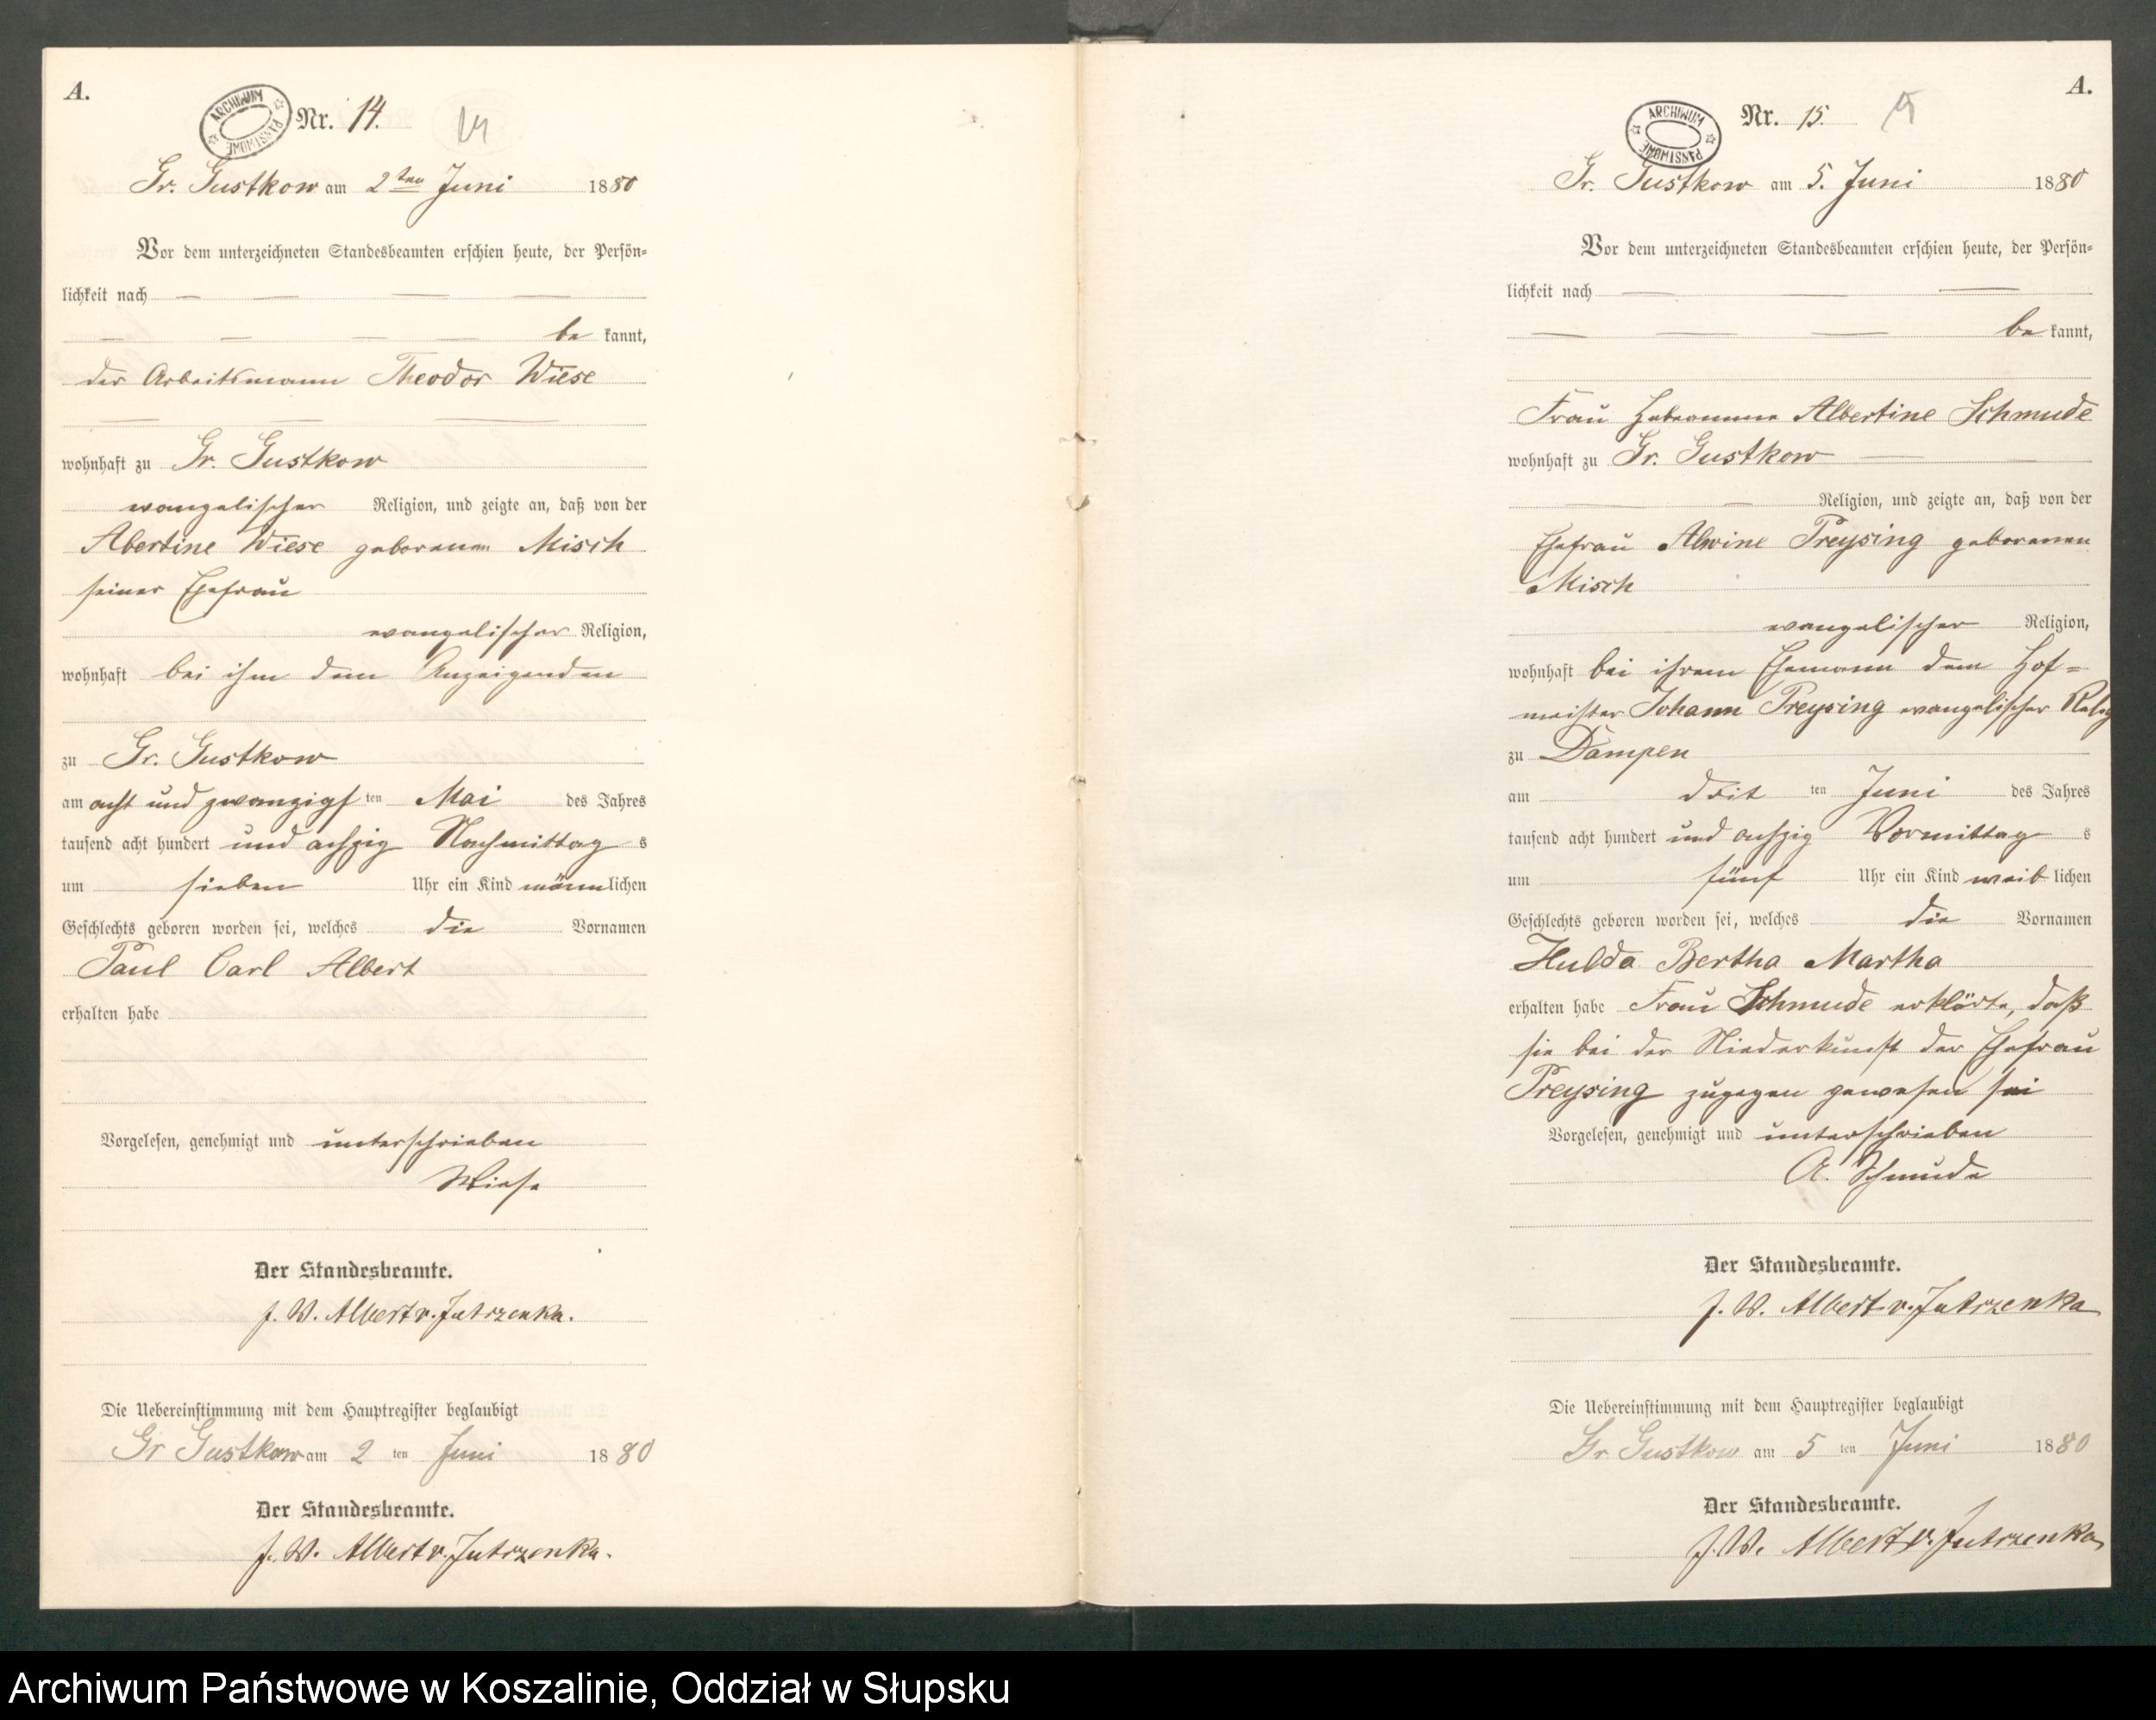 A.
ARCHIWUM PAŃSTWOWE
Nr. 14.
14
Gr. Gustkow am 2ten Juni 1880
Vor dem unterzeichneten Standesbeamten erschien heute, der Persön-
lichkeit nach
be kannt,
der Arbeitsmann Theodor Wiese
wohnhaft zu Gr. Gustkow
evangelischer Religion, und zeigte an, daß von der
Abertine Wiese geborenen Misch
seiner Ehefrau
evangelischer Religion,
wohnhaft bei ihm dem Anzeigenden
zu Gr. Gustkow
am acht und zwanzigsten Mai des Jahres
tausend acht hundert und achzig Nachmittags
um sieben Uhr ein Kind männlichen
Geschlechts geboren worden sei, welches die Vornamen
Paul Carl Albert
erhalten habe
Vorgelesen, genehmigt und unterschrieben
Wiese
Der Standesbeamte.
J. W. Albert v. Jutrzenka.
Die Uebereinstimmung mit dem Hauptregister beglaubigt
Gr Gustkow am 2 ten Juni 1880
Der Standesbeamte.
J. W. Albert v. Jutrzenka.
A.
ARCHIWUM PAŃSTWOWE
Nr. 15.
15
Gr. Gustkow am 5. Juni 1880
Vor dem unterzeichneten Standesbeamten erschien heute, der Persön-
lichkeit nach
be kannt,
Frau Hebeamme Albertine Schmude
wohnhaft zu Gr. Gustkow
Religion, und zeigte an, daß von der
Ehefrau Alwine Preysing geborenen
Misch
evangelischer Religion,
wohnhaft bei ihrem Ehemann dem Hof=
meister Johann Preysing evangelischer Relig
zu Dampen
am dritten Juni des Jahres
tausend acht hundert und achzig Vormittags
um fünf Uhr ein Kind weiblichen
Geschlechts geboren worden sei, welches die Vornamen
Hulda Bertha Martha
erhalten habe Frau Schmude erklärte, daß
sie bei der Niederkunft der Ehefrau
Preysing zugegen gewesen sei
Vorgelesen, genehmigt und unterschrieben
A. Schmude
Der Standesbeamte.
J. W. Albert v. Jutrzenka
Die Uebereinstimmung mit dem Hauptregister beglaubigt
Gr Gustkow am 5 ten Juni 1880
Der Standesbeamte.
J. W. Albert v. Jutrzenka
Archiwum Państwowe w Koszalinie, Oddział w Słupsku